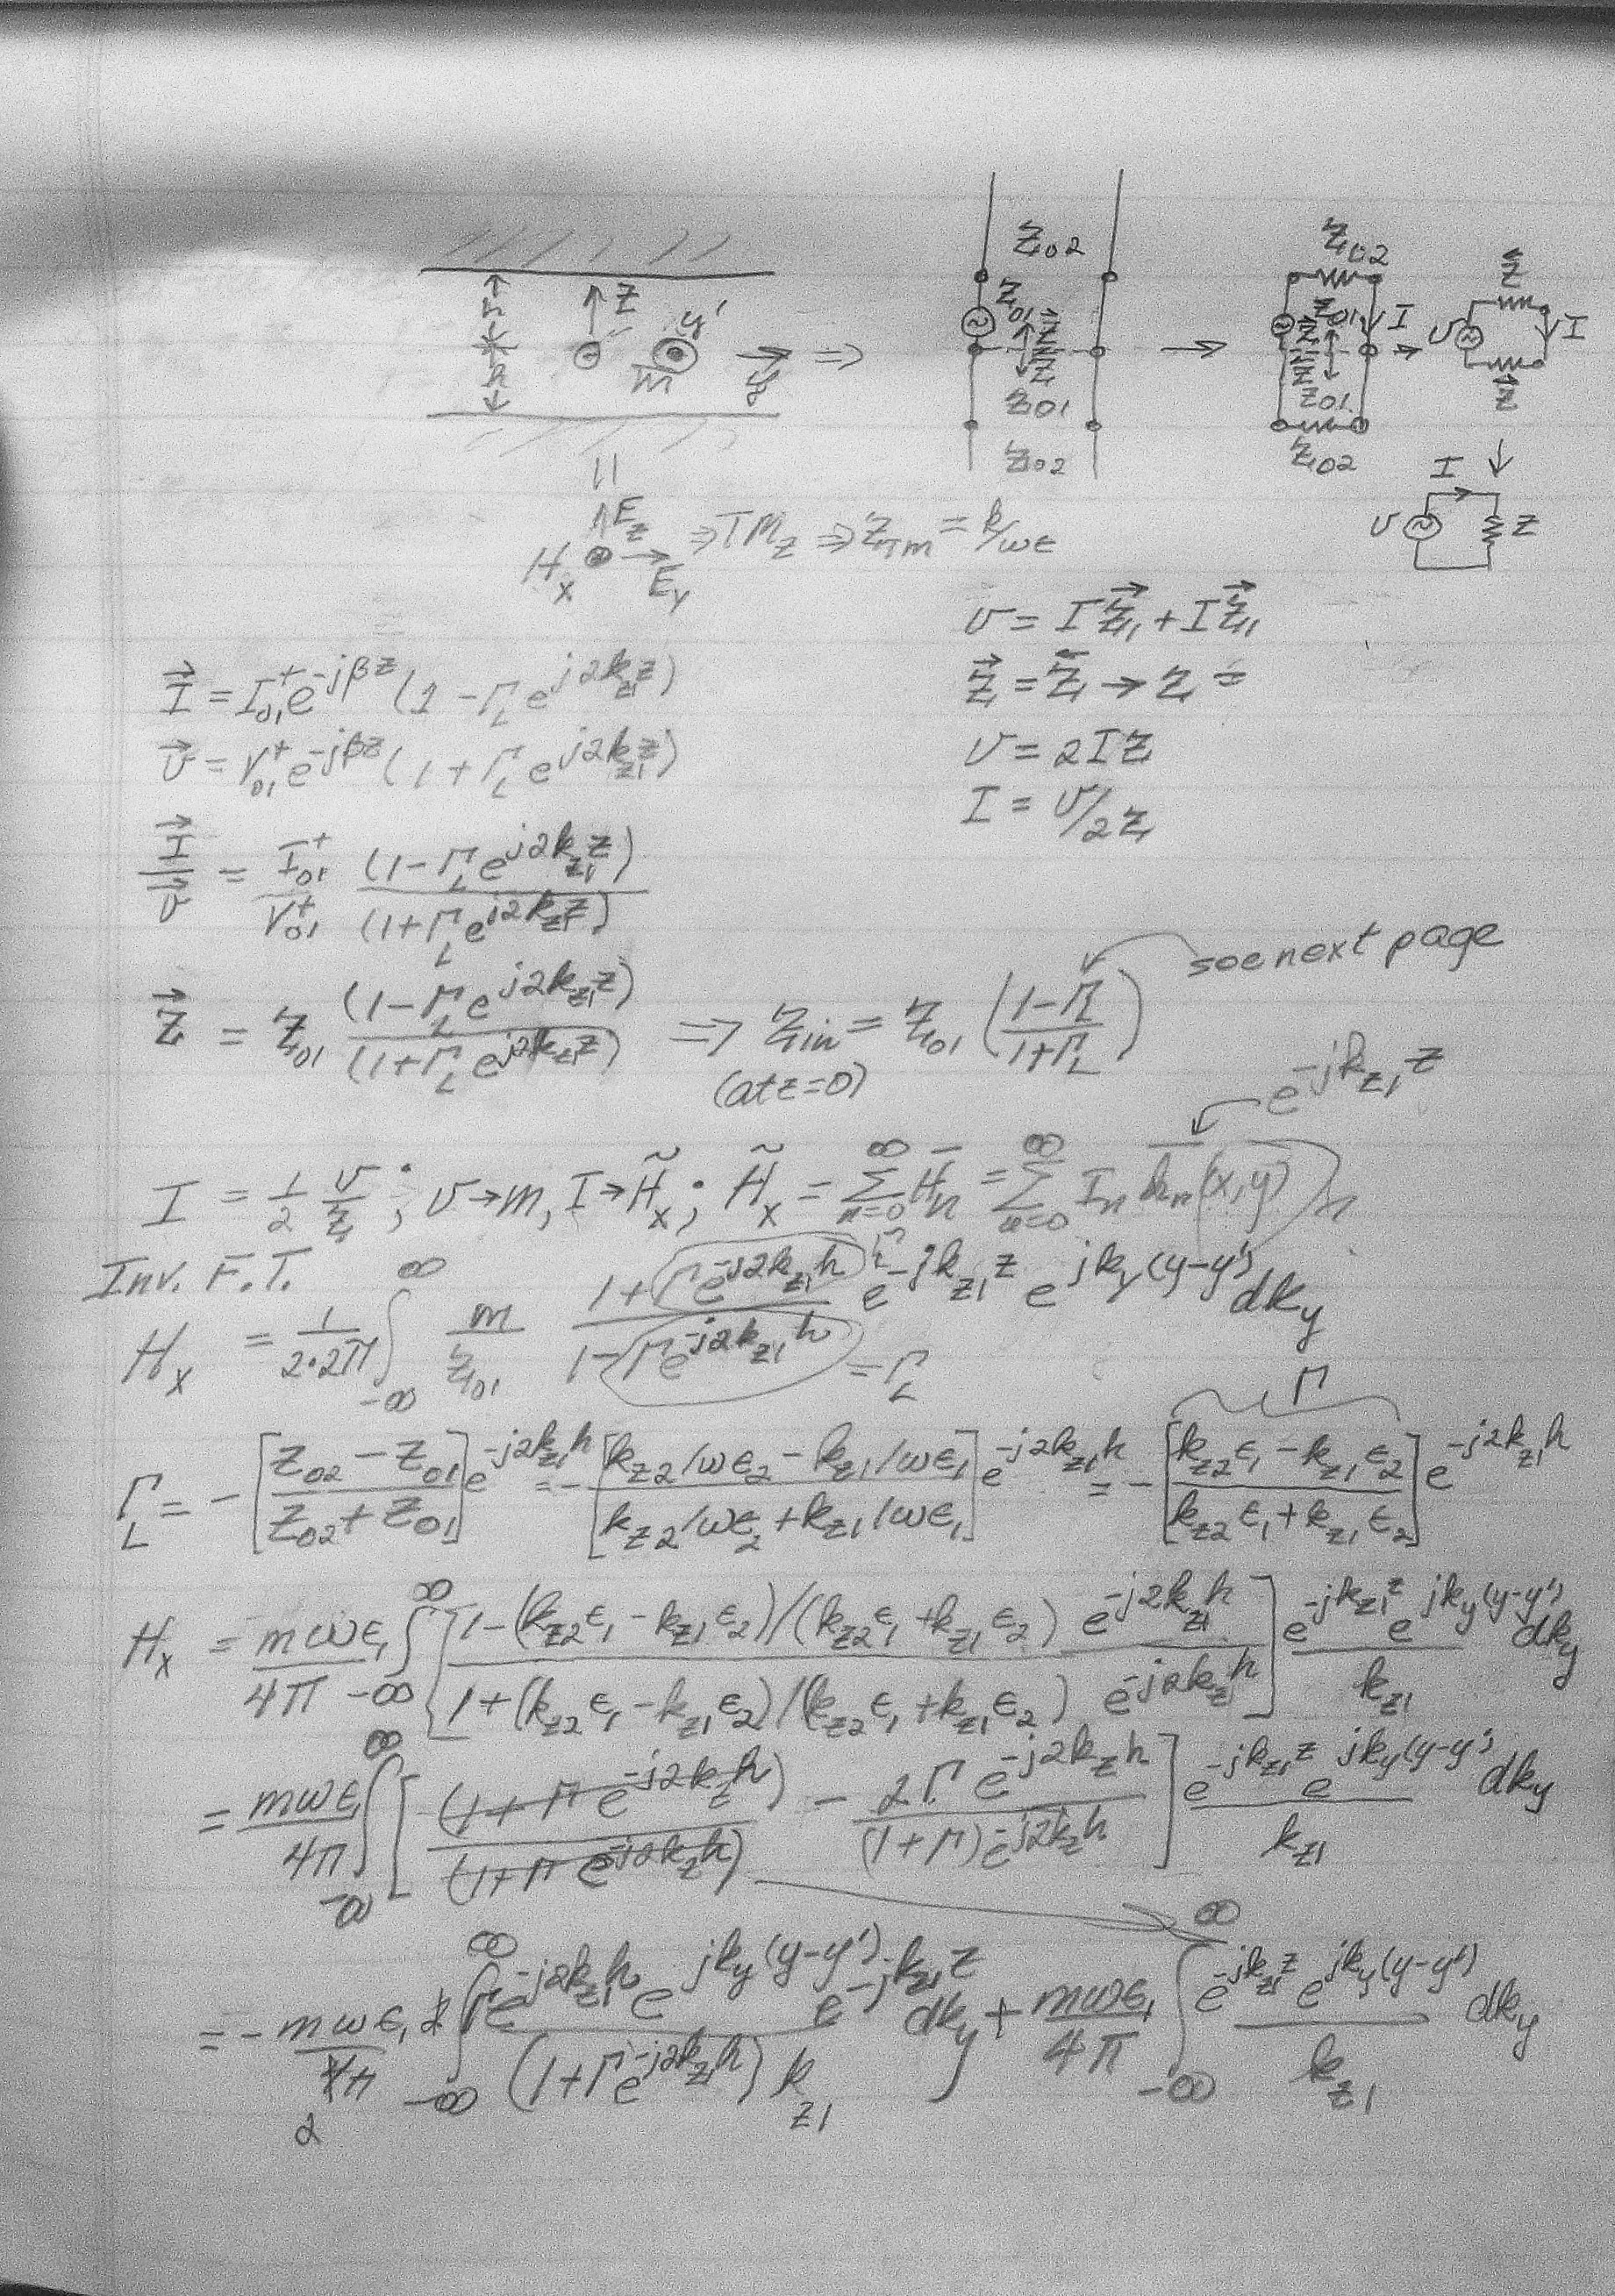 Z₀₂ Z₀₂
h Z y' Z₀₁ Z⃗ Z₀₁ I Z⃖
⇒ → → v I
h m y Z₀₁ Z₀₁ Z⃗
Z₀₂ Z₀₂
I ↓
v Z
E_z ⇒ TM_z ⇒ Z_TM = k/ωε
H_x E_y
v = I Z⃗₁ + I Z⃗₁
I⃗ = I₀₁⁺ e^{-jβz} (1 - Γ_L e^{j2k_{z1}z})
Z⃗₁ = Z⃖₁ → Z₁ =
v⃗ = V₀₁⁺ e^{-jβz} (1 + Γ_L e^{j2k_{z1}z})
v = 2IZ
I = v/2Z
I⃗/v⃗ = I₀₁⁺/V₀₁⁺ (1 - Γ_L e^{j2k_{z1}z})/(1 + Γ_L e^{j2k_{z1}z})
see next page
Z⃗ = Z₀₁ (1 - Γ_L e^{j2k_{z1}z})/(1 + Γ_L e^{j2k_{z1}z}) ⇒ Z_in = Z₀₁ ((1 - Γ_L)/(1 + Γ_L))
(at z=0)
e^{-jk_{z1}z}
I = 1/2 v/Z ; v → m, I → H̃_x ; H̃_x = Σ_{n=0}^{∞} H̄_n = Σ_{n=0}^{∞} I_n h_n (x,y)
Inv. F.T.
H_x = 1/(2·2π) ∫_{-∞}^{∞} m/Z₀₁ (1 + Γe^{-j2k_{z1}h})/(1 - Γe^{-j2k_{z1}h}) e^{-jk_{z1}z} e^{jk_y(y-y')} dk_y
= Γ_L
Γ
Γ_L = -[(Z₀₂ - Z₀₁)/(Z₀₂ + Z₀₁)] e^{-j2k_{z1}h} = -[(k_{z2}/ωε₂ - k_{z1}/ωε₁)/(k_{z2}/ωε₂ + k_{z1}/ωε₁)] e^{-j2k_{z1}h} = -[(k_{z2}ε₁ - k_{z1}ε₂)/(k_{z2}ε₁ + k_{z1}ε₂)] e^{-j2k_{z1}h}
H_x = mωε₁/4π ∫_{-∞}^{∞} [(1 - (k_{z2}ε₁ - k_{z1}ε₂)/(k_{z2}ε₁ + k_{z1}ε₂) e^{-j2k_{z1}h})/(1 + (k_{z2}ε₁ - k_{z1}ε₂)/(k_{z2}ε₁ + k_{z1}ε₂) e^{-j2k_{z}h})] e^{-jk_{z1}z} e^{jk_y(y-y')}/k_{z1} dk_y
= mωε₁/4π ∫_{-∞}^{∞} [(1 + Γe^{-j2k_z h})/(1 + Γe^{-j2k_z h}) - 2Γe^{-j2k_z h}/(1 + Γ)e^{-j2k_z h}] e^{-jk_{z1}z} e^{jk_y(y-y')}/k_{z1} dk_y
= - mωε₁ 2/4π ∫_{-∞}^{∞} Γe^{-j2k_{z1}h} e^{jk_y(y-y')} e^{-jk_{z1}z}/((1 + Γe^{-j2k_{z1}h}) k_{z1}) dk_y + mωε₁/4π ∫_{-∞}^{∞} e^{-jk_{z1}z} e^{jk_y(y-y')}/k_{z1} dk_y
2